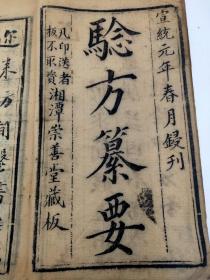 宣統元年春月鋟刊
驗方纂要
凡印送者
板不取資
湘潭崇善堂藏板